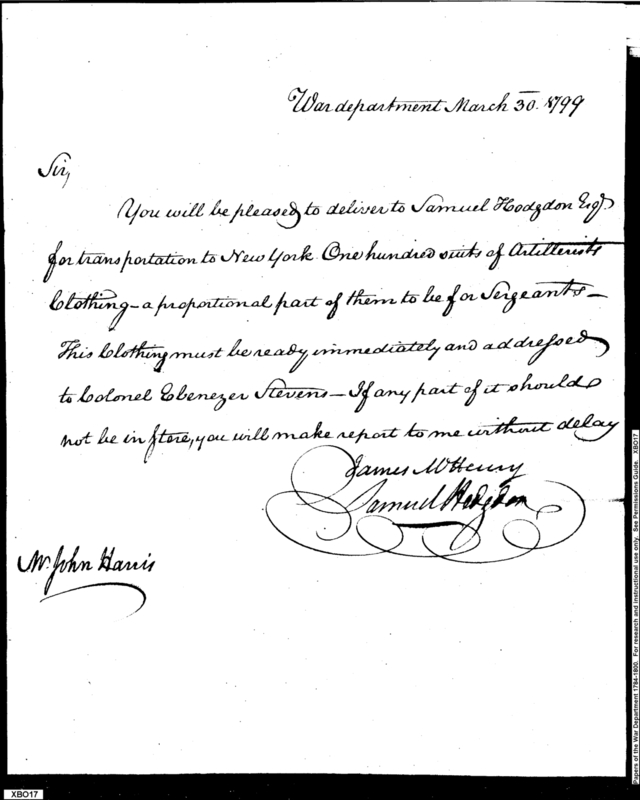 War department March 30. 1799
Sir,
You will be pleased to deliver to Samuel Hodgdon Esqr.
for transportation to New York. One hundred suits of Artillerists
Clothing – a proportional part of them to be for Sergeants –
This Clothing must be ready immediately and addressed
to Colonel Ebenezer Stevens – If any part of it should
not be in store, you will make report to me without delay
James McHenry
Samuel Hodgdon
Mr. John Harris
XBO17
Papers of the War Department 1784-1800. For research and instructional use only. See Permissions Guide. XBO17